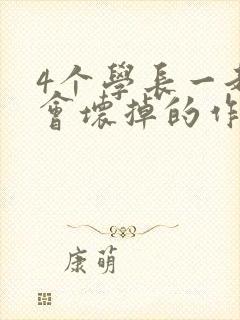 4个學長一
會壞掉的作
康萌